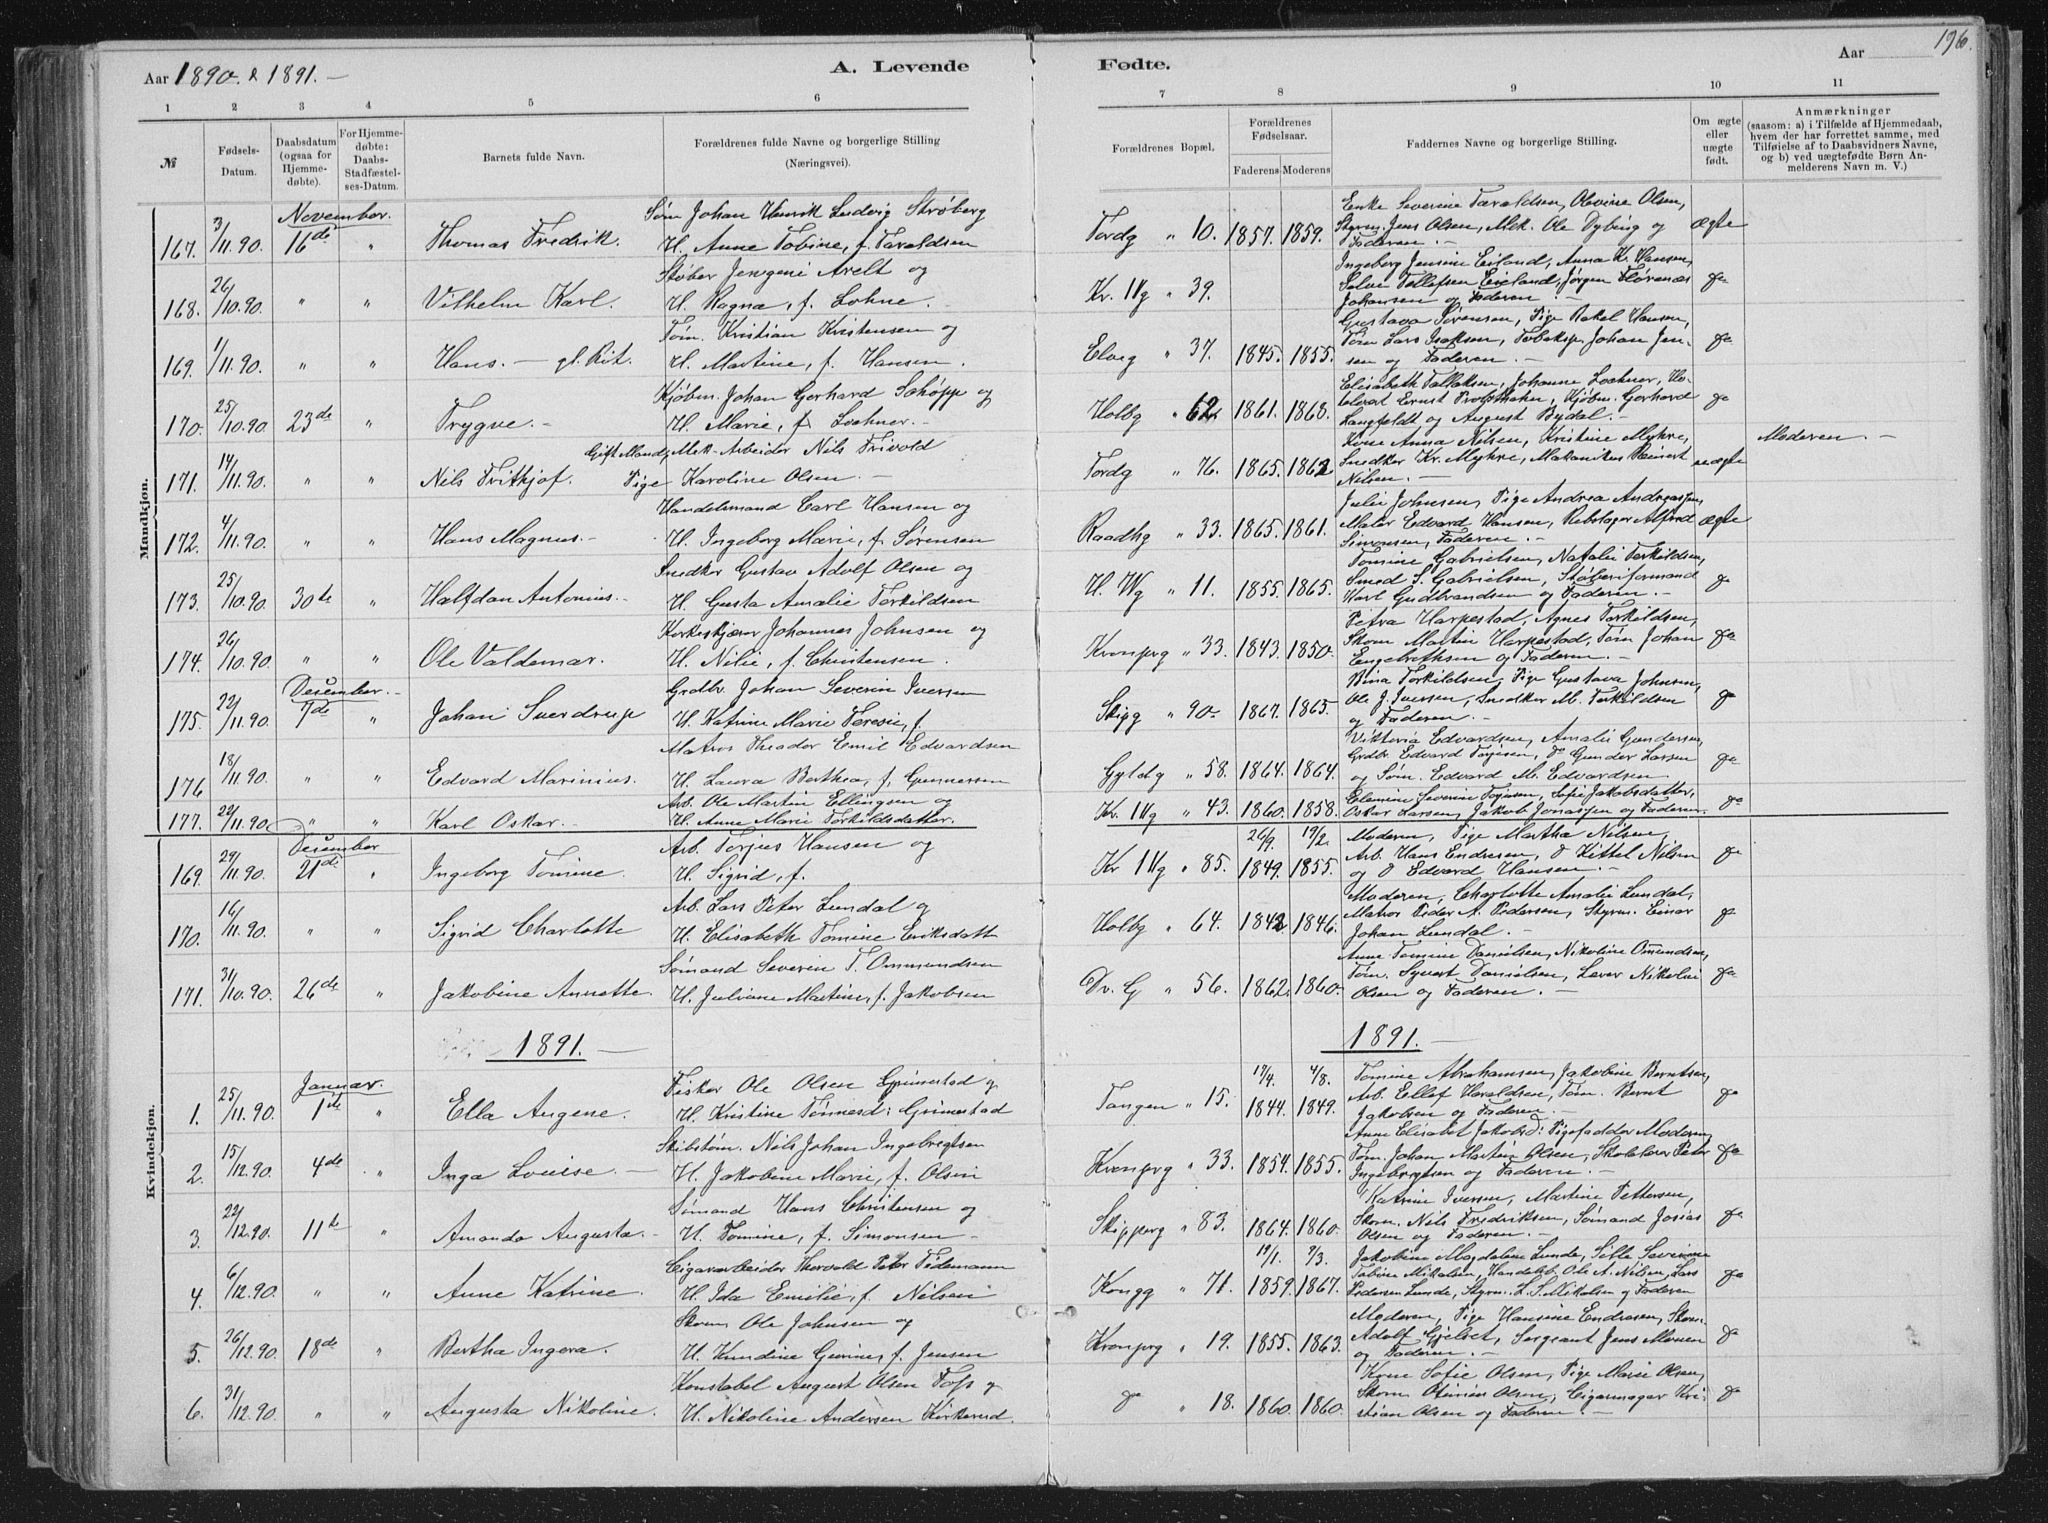 Aar 1890 & 1891. —
A. Levende
Fødte.
Aar
196.
1 2 3 4 5 6 7 8 9 10 11
№
Fødsels-Datum.
Daabsdatum (ogsaa for Hjemmedøbte).
For Hjemmedøbte: Daabs-Stadfæstelses-Datum.
Barnets fulde Navn.
Forældrenes fulde Navne og borgerlige Stilling (Næringsvei).
Forældrenes Bopæl.
Forældrenes Fødselsaar.
Faderens Moderens
Faddernes Navne og borgerlige Stilling.
Om ægte eller uægte født.
Anmærkninger
(saasom: a) i Tilfælde af Hjemmedaab, hvem der har forrettet samme, med Tilføielse af to Daabsvidners Navne, og b) ved uægtefødte Børn Anmelderens Navn m. V.)
Mandkjøn.
November.
167. 3/11.90. 16de " Thomas Fredrik. Tøm Johan Henrik Ludvig Strøberg
H. Anne Tobine, f. Taraldsen
Tordg " 10. 1857. 1859.
Enke Severine Taraldsen, Olevine Olsen,
Styrm. Jens Olsen, Mek. Ole Dybing og
Faderen. —
ægte
168. 26/10.90. " " Vilhelm Karl. Støber Jensgeni Arelt og
H. Ragna, f. Lohne.
Kr. IVg " 39.
Ingeborg Jensine Eieland, Anna K. Hansen,
Salve Tellefsen Eieland, Jørgen Florenæs
Johansen og Faderen. —
do
169. 1/11.90. " " Hans. — gl. Rit. Tøm. Kristian Kristensen og
H. Martine, f. Hansen.
Elveg " 37. 1845. 1855.
Gustava Sørensen, Pige Rakel Hansen,
Tøm Lars Isaksen, Tobaksp. Johan Jensen og Faderen. —
do
170. 25/10.90 23de " Trygve. — Kjøbm. Johan Gerhard Schøpp og
H. Marie, f. Lochner. —
Holbg " 62. 1861. 1868.
Elisabeth Fallaksen, Johanne Lochner,
Ernst Profsthahn, Kjøbm. Gerhard
Langfeldt og August Bydal. —
do
171. 14/11.90. " " Nils Frithjof. Gift Mand, Mek-Arbeider Nils Trivold
Pige Karoline Olsen. —
Tordg " 76. 1865. 1862
Kone Anna Nilsen, Kristine Myhre,
Snedker Kr. Myhre, Mekanikus Reinert
Nilsen. —
uægte
Moderen. —
172. 4/11.90. " " Hans Magnus. — Handelsmand Carl Hansen og
H. Ingeborg Marie, f. Sørensen
Raadhg " 33. 1865. 1861.
Julie Johnsen, Pige Andrea Andreassen,
Maler Edvard Hansen, Rebslager Alfred
Simonsen, Faderen. —
ægte
173. 25/10.90 30te " Halfdan Antonius. — Snedker Gustav Adolf Olsen og
H. Gusta Amalie Torkildsen
H. Wg " 11. 1855. 1865.
Tomine Gabrielsen, Natalie Torkildsen,
Smed S. Gabrielsen, Støberiformand
Karl Gudbrandsen og Faderen. —
do
174. 26/10.90. " " Ole Valdemar. Korkeskjærer Johannes Johnsen og
H. Nilie, f. Christensen.
Kronprg " 33. 1843. 1850.
Petra Harpestad, Agnes Torkildsen,
Skom Martin Harpestad, Tøm Johan
Engebrethsen og Faderen. —
do
Desember. —
175. 22/11.90. 7de " Johan Sverdrup Grdbr. Johan Severin Iversen
H. Katrine Marie Teresie, f.
Skipg " 90. 1867. 1865.
Bina Torkildsen, Pige Gustava Johnsen,
Ole J. Iversen, Snedker M. Torkildsen
og Faderen. —
do
176 18/11.90. " " Edvard Marinius. Matros Theodor Emil Edvardsen
H. Laura Berthea, f. Gunnersen
Gyldg " 58. 1864. 1864.
Viktoria Edvardsen, Amalie Gundersen,
Grdbr. Edvard Torjesen, do Gunder Larsen
og Tøm. Edvard M. Edvardsen.
do
177. 22/11.90. " " Karl Oskar. — Arb. Ole Martin Ellingsen og
H. Anne Marie Torkildsdatter.
Kr. IVg " 43. 1860. 1858.
Elemine Severine Torjusen, Sofie Jakobsdatter,
Oskar Larsen, Jakob Jonassen og Faderen.
do
Kvindekjøn.
Desember
169. 29/11.90. 21de " Ingeborg Tomine. Arb. Torjus Hansen og
H. Sigrid, f.
Kr IVg " 85. 26/9. 1849. 19/2. 1855.
Moderen, Pige Martha Nilsen,
Arb. Hans Endresen, do Kittel Nilsen
og do Edvard Hansen. —
do
170. 16/11.90. " " Sigrid Charlotte Arb. Lars Peter Lundal og
H. Elisabeth Tomine Eriksdatt
Holbg " 64. 1842 1846.
Moderen, Charlotte Amalie Lundal,
Matros Peder A. Pedersen, Styrm. Einar
Johan Lundal. —
do
171. 31/10.90. 26de " Jakobine Annette. Sømand Severin T. Ommundsen
H. Juliane Martine, f. Jakobsen
Dr. G " 56. 1862. 1860.
Anne Tomine Danielsen, Nikoline Omundsen,
Tøm. Syvert Danielsen, Laver Nikolai
Olsen og Faderen. —
do
1891. —
1891. —
Januar.
1. 25/11.90. 1ste " Ella Augene. Fisker Ole Olsen Grimestad og
H. Kristine Tønnesd: Grimestad
Tangen " 15. 19/4. 1844. 4/8. 1849.
Tomine Abrahamsen, Jakobine Berntsen,
Arb. Ellef Haraldsen, Tøm. Bernt
Jakobsen og Faderen. —
do
2. 15/12.90. 4de " Inga Louise. — Skibstøm. Nils Johan Ingebregtsen
H. Jakobine Marie, f. Olsen
Kronprg " 33. 1854. 1855.
Anne Elisabet Jakobsd: Pigefadder Moderen,
Tøm. Johan Martin Olsen, Skolelærer Peter
Ingebregtsen og Faderen. —
do
3. 22/12.90. 11te " Amanda Augusta. — Sømand Hans Christensen og
H. Tomine, f. Simonsen —
Skipperg " 83. 1864. 1860.
Katrine Iversen, Martine Pettersen,
Skom. Nils Fredriksen, Sømand Josias
Olsen og Faderen. —
do
4. 6/12.90. " " Anne Katrine. Cigararbeider Thorvald Peter Tidemann
H. Ida Emilie, f. Nilsen
Kongg " 71. 19/1. 1859. 9/3. 1867.
Jakobine Magdalene Lunde, Sille Severine
Tobine Mikalsen, Handelsb. Ole A. Nilsen, Lars
Pedersen Lunde, Styrm. L. S. Mikalsen og Faderen
do
5. 26/12.90. 18de " Bertha Ingera. Skom Ole Johnsen og
H. Kundine Gurine, f. Jensen
Kronprg " 19. 1855. 1863.
Moderen, Pige Hansine Endresen, Skom.
Adolf Gjelset, Sergeant Jens Monsen
og Faderen. —
do
6. 31/12.90. " " Augusta Nikoline. Konstabel August Olsen Foss og
H. Nikoline Andersen Kirkerud.
do " 18. 1860. 1860.
Kone Sofie Olsen, Pige Marie Olsen,
Skom Olsen, Cigarmager Kristian Olsen og Faderen. —
do